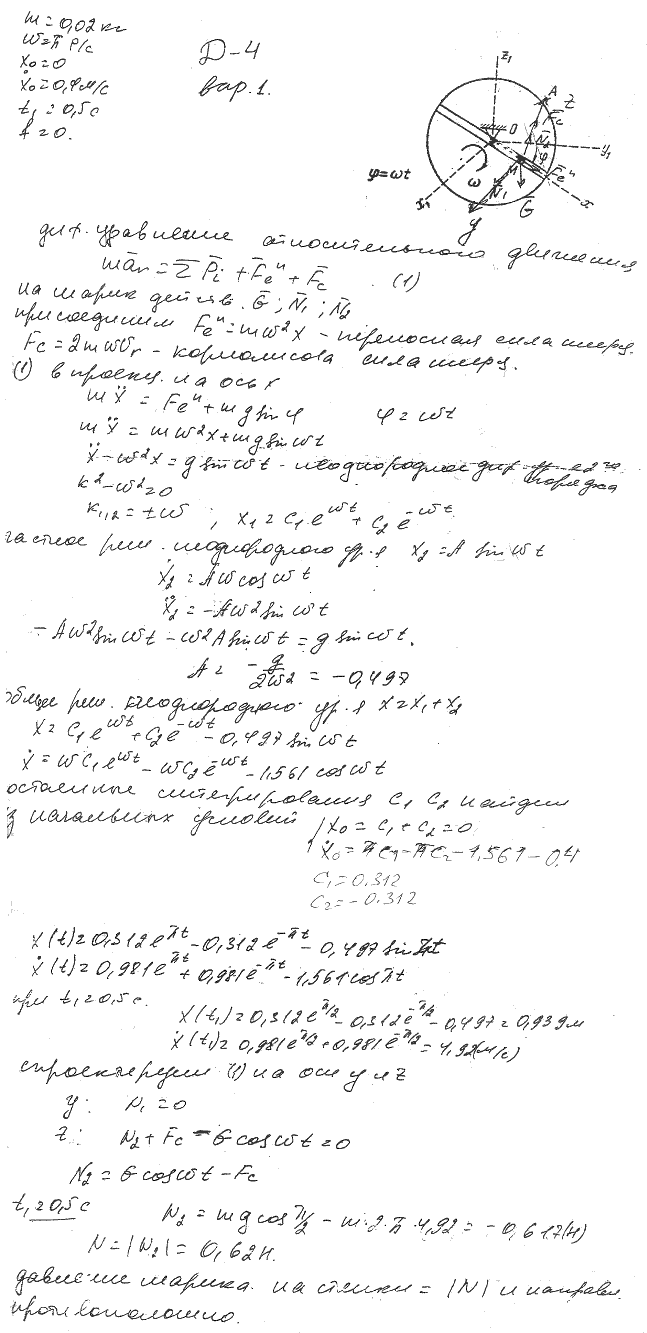 m = 0,02 кг
ω = π р/с
x₀ = 0
ẋ₀ = 0,4 м/с
t₁ = 0,5 с
f = 0.
Д-4
вар. 1.
z₁
A
Z
F̄c
O
N̄₂
φ
y₁
φ = ωt
ω
M
F̄eⁿ
N̄₁
Ḡ
x
y
диф. уравнение относительного движения
mār = Σ P̄i + F̄eⁿ + F̄c (1)
на шарик действ. Ḡ; N̄₁; N̄₂
присоединим Feⁿ = mω²x - переносная сила инерц.
Fc = 2mωVr - кориолисова сила инерц.
(1) в проекц. на ось x
mẍ = Feⁿ + mg sin φ φ = ωt
mẍ = mω²x + mg sin ωt
ẍ - ω²x = g sin ωt - неоднородное диф. ур-е 2го
порядка
k² - ω² = 0
k₁,₂ = ±ω ; x₁ = C₁e^ωt + C₂e^-ωt
частное реш. неоднородного ур-я x₂ = A sin ωt
ẋ₂ = Aω cos ωt
ẍ₂ = -Aω² sin ωt
-Aω² sin ωt - ω²A sin ωt = g sin ωt.
A = -g/2ω² = -0,497
общее реш. неоднородного ур-я x = x₁ + x₂
x = C₁e^ωt + C₂e^-ωt - 0,497 sin ωt
ẋ = ωC₁e^ωt - ωC₂e^-ωt - 1,561 cos ωt
постоянные интегрирования C₁ C₂ найдем
из начальных условий x₀ = C₁ + C₂ = 0
ẋ₀ = πC₁ - πC₂ - 1,561 - 0,4
C₁ = 0.312
C₂ = -0.312
x(t) = 0,312e^πt - 0,312e^-πt - 0,497 sin πt
ẋ(t) = 0,981e^πt + 0,981e^-πt - 1,561 cos πt
при t₁ = 0,5 с.
x(t₁) = 0,312e^π/2 - 0,312e^-π/2 - 0,497 = 0,939 м
ẋ(t₁) = 0,981e^π/2 + 0,981e^-π/2 = 4,92 (м/с)
спроектируем (1) на оси y и z
y: N₁ = 0
z: N₂ + Fc - G cos ωt = 0
N₂ = G cos ωt - Fc
t₁ = 0,5 с N₂ = mg cos π/2 - m·2·π·4,92 = -0,617 (Н)
N = |N₂| = 0,62 Н.
давление шарика на стенки = |N| и направл.
противоположно.